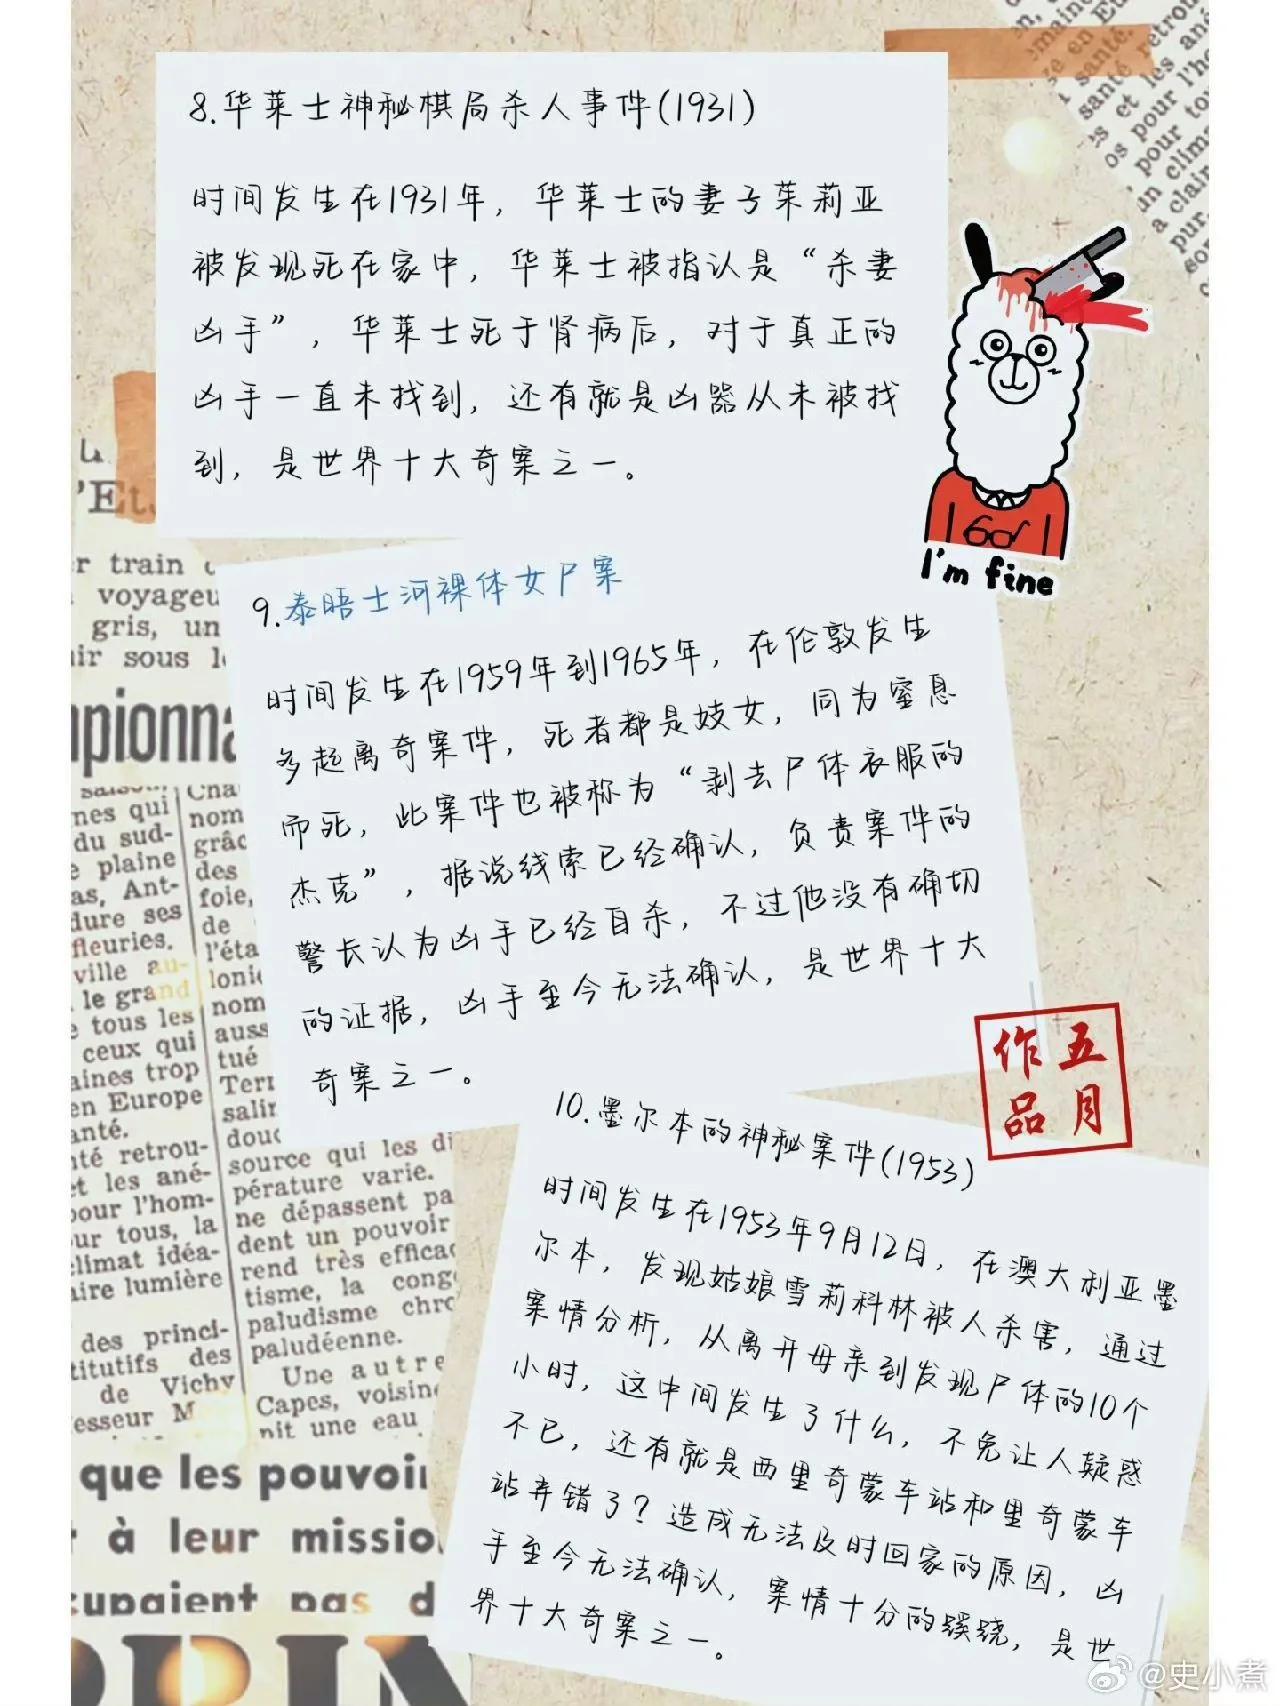 8.华莱士神秘棋局杀人事件(1931)
时间发生在1931年，华莱士的妻子茱莉亚
被发现死在家中，华莱士被指认是“杀妻
凶手”，华莱士死于肾病后，对于真正的
凶手一直未找到，还有就是凶器从未被找
到，是世界十大奇案之一。
I'm fine
9.泰晤士河裸体女尸案
时间发生在1959年到1965年，在伦敦发生
多起离奇案件，死者都是妓女，同为窒息
而死，此案件也被称为“剥去尸体衣服的
杰克”，据说线索已经确认，负责案件的
警长认为凶手已经自杀，不过他没有确切
的证据，凶手至今无法确认，是世界十大
奇案之一。
五月
作品
10.墨尔本的神秘案件(1953)
时间发生在1953年9月12日，在澳大利亚墨
尔本，发现姑娘雪莉科林被人杀害，通过
案情分析，从离开母亲到发现尸体的10个
小时，这中间发生了什么，不免让人疑惑
不已，还有就是西里奇蒙车站和里奇蒙车
站弄错了？造成无法及时回家的原因，凶
手至今无法确认，案情十分的蹊跷，是世
界十大奇案之一。
train
voyageu
gris, un
sous
nes qui
du sud-
plaine
as, Ant-
dure ses
fleuries.
ville au-
le grand
tous les
ceux qui
aines trop
en Europe
anté.
té retrou-
et les ané-
pour l'hom-
ur tous, la
climat idéa-
aire lumière
des princi-
titutifs des
de Vichy
nom
grâc
des
foie,
de
l'éta
lonie
nom
auss
tué
salin
source qui les di
pérature varie.
ne dépassent pa
dent un pouvoir
rend très efficac
tisme, la cong
paludisme chro
paludéenne.
Une autre
Capes, voisine
nit une eau
que les pouvoir
à leur missio
cupaient pas d
@史小煮